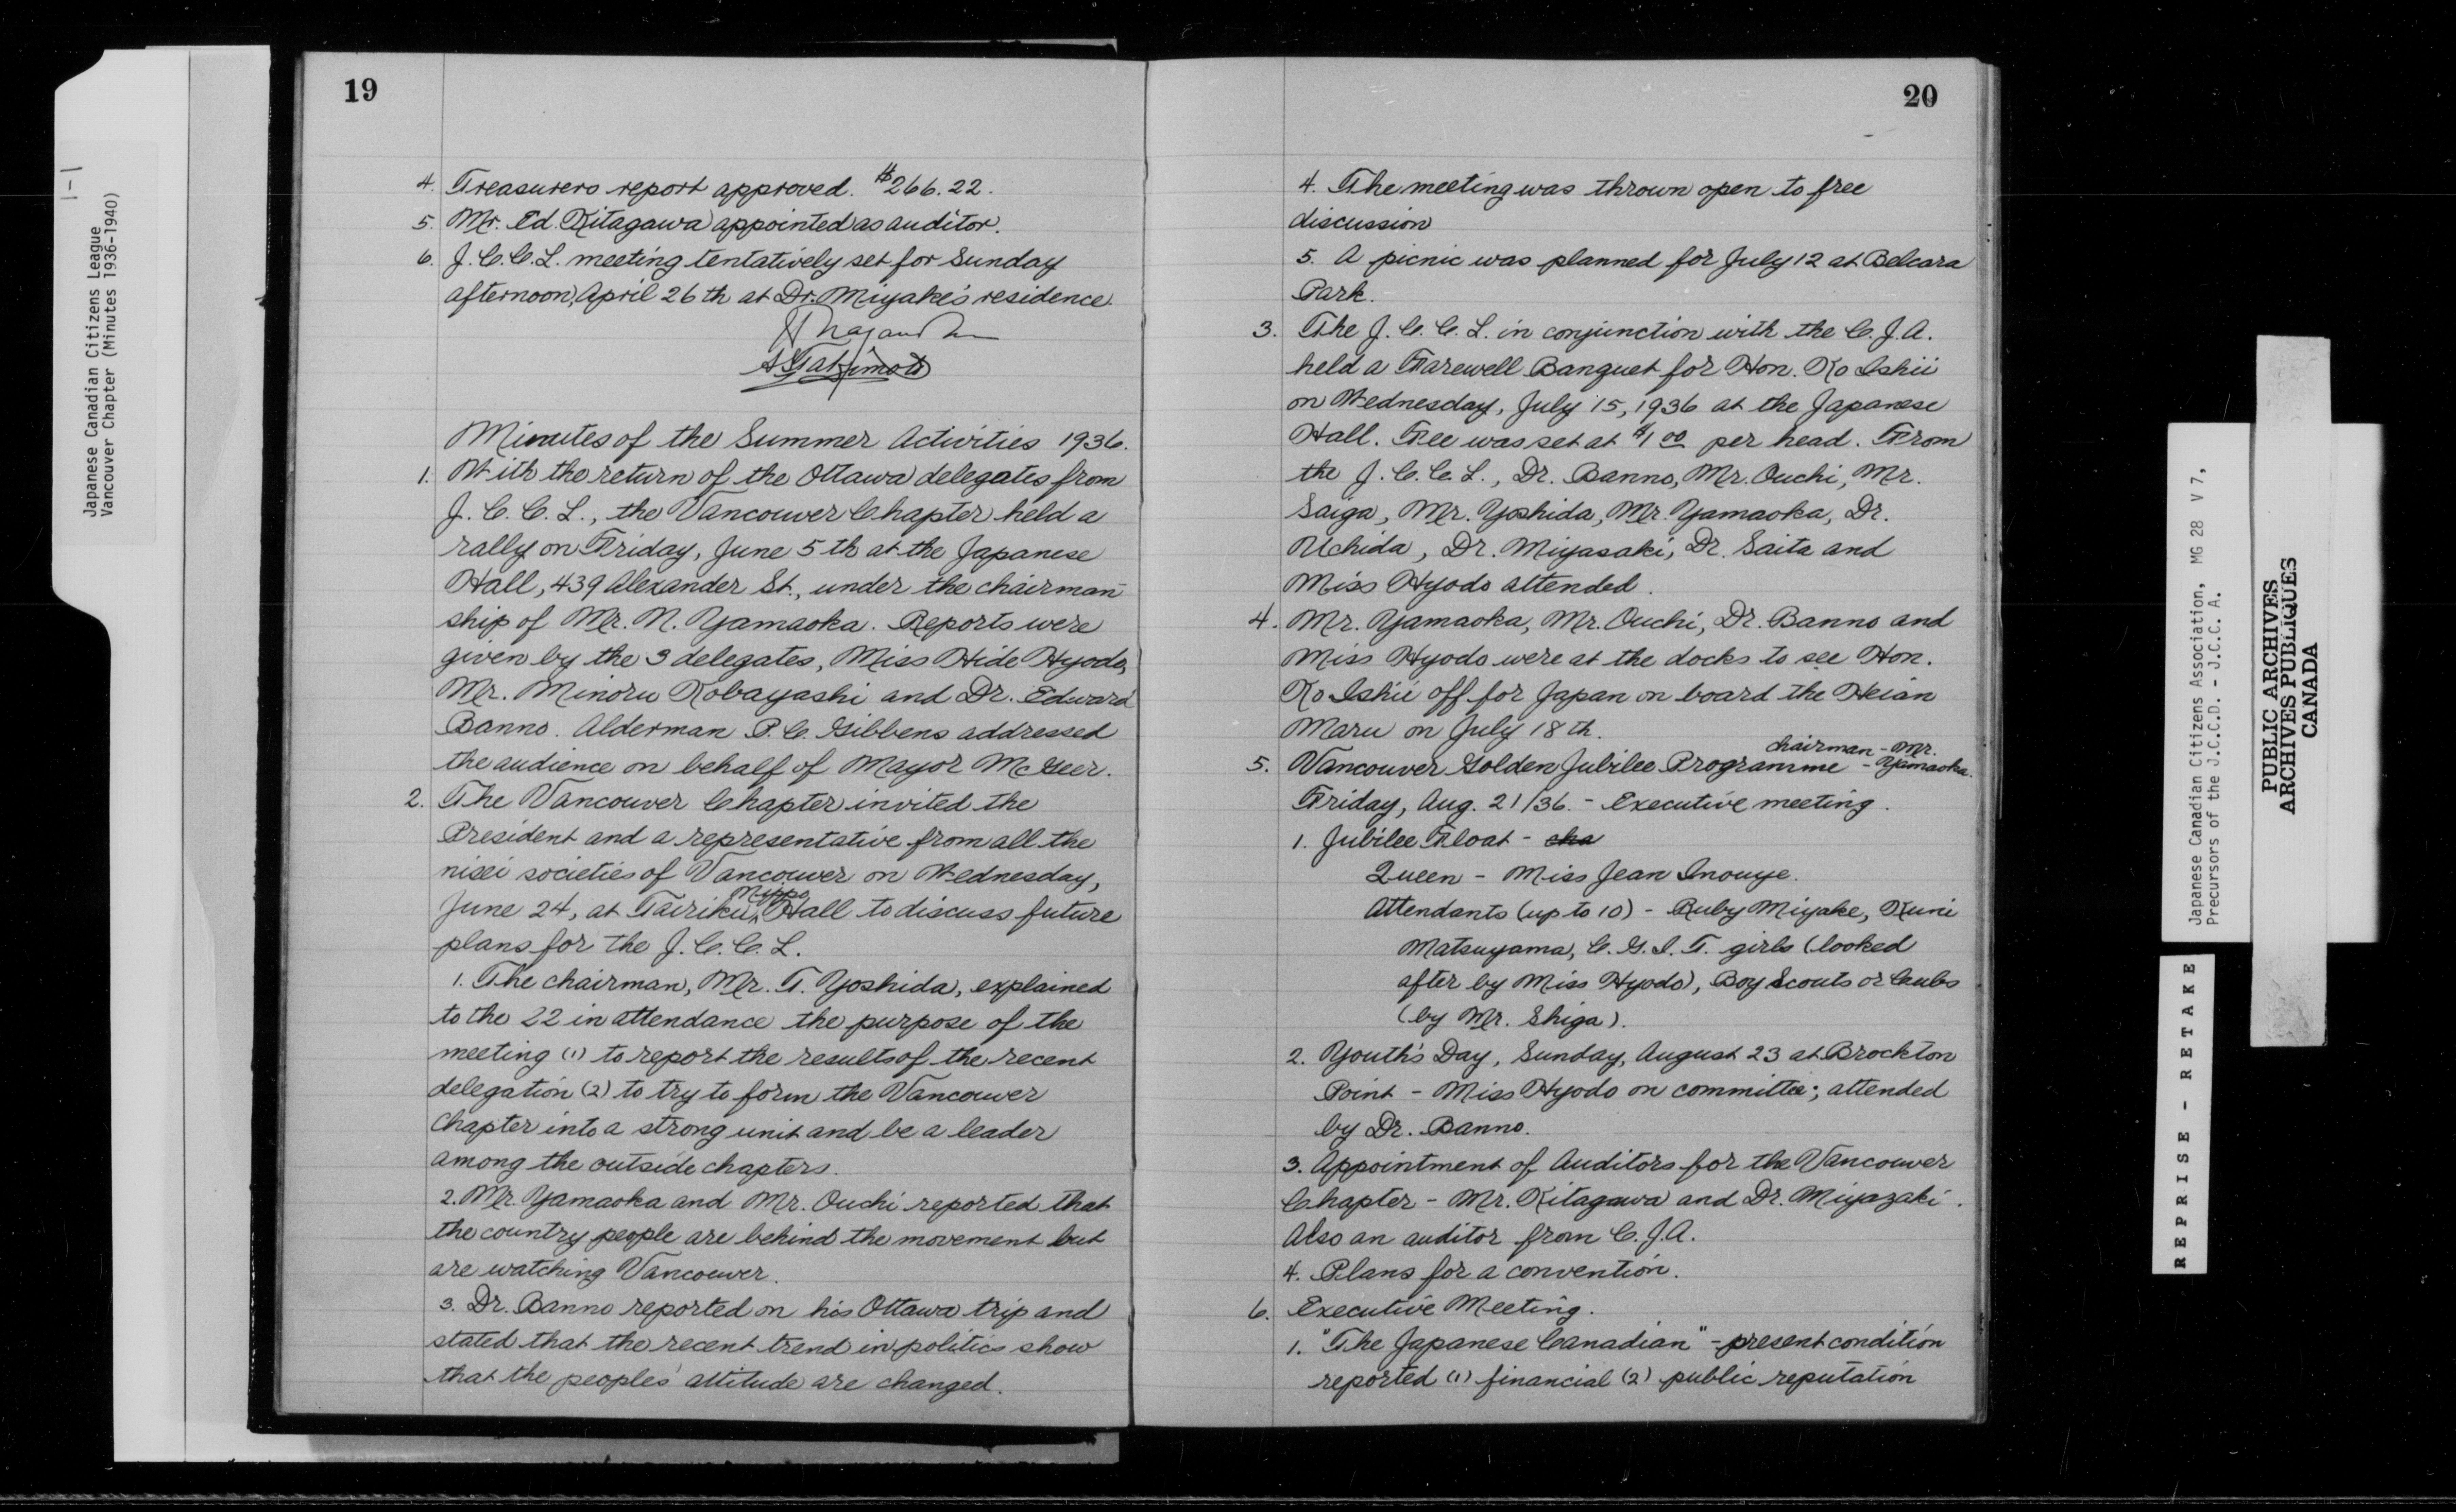 1-1
Japanese Canadian Citizens League
Vancouver Chapter (Minutes 1936-1940)
19
4. Treasurers report approved. $266.22.
5. Mr. Ed. Kitagawa appointed as auditor.
6. J.C.C.L. meeting tentatively set for Sunday
afternoon, April 26th at Dr. Miyake's residence.
Minutes of the Summer Activities 1936.
1. With the return of the Ottawa delegates from
J.C.C.L., the Vancouver Chapter held a
rally on Friday, June 5th at the Japanese
Hall, 439 Alexander St., under the chairman-
ship of Mr. N. Yamaoka. Reports were
given by the 3 delegates, Miss Hide Hyodo,
Mr. Minoru Kobayashi and Dr. Edward
Banno. Alderman P.C. Gibbens addressed
the audience on behalf of Mayor McGeer.
2. The Vancouver Chapter invited the
President and a representative from all the
nisei societies of Vancouver on Wednesday,
June 24, at Tairiku Nippo Hall to discuss future
plans for the J.C.C.L.
1. The chairman, Mr. T. Yoshida, explained
to the 22 in attendance the purpose of the
meeting (1) to report the results of the recent
delegation (2) to try to form the Vancouver
Chapter into a strong unit and be a leader
among the outside chapters.
2. Mr. Yamaoka and Mr. Ouchi reported that
the country people are behind the movement but
are watching Vancouver.
3. Dr. Banno reported on his Ottawa trip and
stated that the recent trend in politics show
that the peoples' attitude are changed.
20
4. The meeting was thrown open to free
discussion
5. A picnic was planned for July 12 at Belcara
Park.
3. The J.C.C.L. in conjunction with the C.J.A.
held a Farewell Banquet for Hon. Ko Ishii
on Wednesday, July 15, 1936 at the Japanese
Hall. Fee was set at $1.00 per head. From
the J.C.C.L., Dr. Banno, Mr. Ouchi, Mr.
Saiga, Mr. Yoshida, Mr. Yamaoka, Dr.
Uchida, Dr. Miyasaki, Dr. Saita and
Miss Hyodo attended.
4. Mr. Yamaoka, Mr. Ouchi, Dr. Banno and
Miss Hyodo were at the docks to see Hon.
Ko Ishii off for Japan on board the Heian
Maru on July 18th.
5. Vancouver Golden Jubilee Programme - chairman - Mr. Yamaoka.
Friday, Aug. 21/36. - Executive meeting.
1. Jubilee Float - cha
Queen - Miss Jean Inouye.
Attendants (up to 10) - Ruby Miyake, Kuni
Matsuyama, C.G.I.T. girls (looked
after by Miss Hyodo), Boy Scouts or Cubs
(by Mr. Shiga).
2. Youth's Day, Sunday, August 23 at Brockton
Point - Miss Hyodo on committee; attended
by Dr. Banno.
3. Appointment of Auditors for the Vancouver
Chapter - Mr. Kitagawa and Dr. Miyazaki.
Also an auditor from C.J.A.
4. Plans for a convention.
6. Executive Meeting.
1. "The Japanese Canadian" - present condition
reported (1) financial (2) public reputation
Japanese Canadian Citizens Association, MG 28 V 7,
Precursors of the J.C.C.D. - J.C.C.A.
REPRISE - RETAKE
PUBLIC ARCHIVES
ARCHIVES PUBLIQUES
CANADA